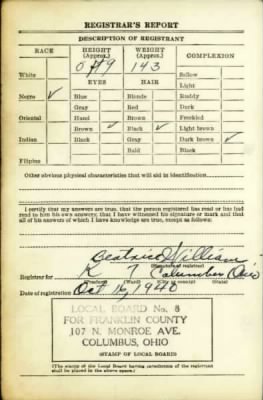 REGISTRAR'S REPORT
DESCRIPTION OF REGISTRANT
RACE
HEIGHT (Approx.)
WEIGHT (Approx.)
COMPLEXION
5 ft 9
143
White
Sallow
EYES
HAIR
Light
Negro ✓
Blue
Blonde
Ruddy
Gray
Red
Dark
Oriental
Hazel
Brown
Freckled
Brown ✓
Black ✓
Light brown
Indian
Black
Gray
Dark brown ✓
Bald
Black
Filipino
Other obvious physical characteristics that will aid in identification
I certify that my answers are true; that the person registered has read or has had
read to him his own answers; that I have witnessed his signature or mark and that
all of his answers of which I have knowledge are true, except as follows:
Beatrice William
(Signature of registrar)
Registrar for K 7 Columbus Ohio
(Precinct) (Ward) (City or county) (State)
Date of registration Oct 16, 1940
LOCAL BOARD No. 8
FOR FRANKLIN COUNTY
107 N. MONROE AVE.
COLUMBUS, OHIO
(STAMP OF LOCAL BOARD)
(The stamp of the Local Board having jurisdiction of the registrant
shall be placed in the above space.)